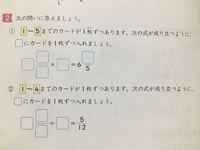 2 次の問いに答えましょう。
① 1～5までのカードが1枚ずつあります。次の式が成り立つように、
□にカードを1枚ずつ入れましょう。
□ □/□ × □ = 6 □/5
② 1～4までのカードが1枚ずつあります。次の式が成り立つように、
□にカードを1枚ずつ入れましょう。
□ □/□ ÷ □ = 5/12